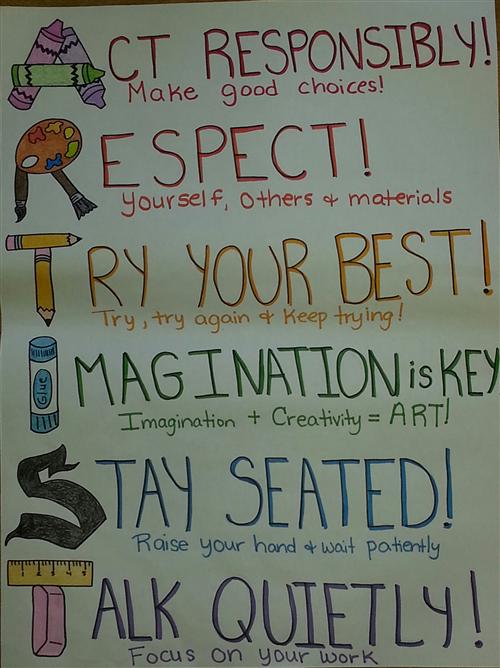 ACT RESPONSIBLY!
Make good choices!
RESPECT!
Yourself, Others & materials
TRY YOUR BEST!
Try, try again & Keep trying!
Glue
IMAGINATION is KEY
Imagination + Creativity = ART!
STAY SEATED!
Raise your hand & wait patiently
1 2 3 4 5
TALK QUIETLY!
Focus on your work